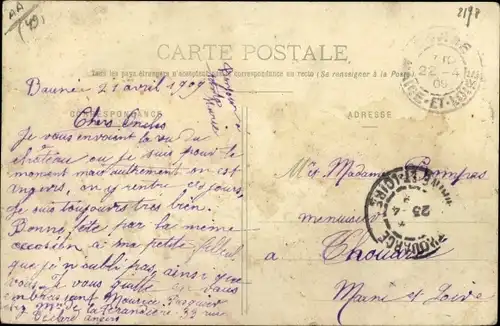 AA
(49)
2178
CARTE POSTALE
Tous les pays étrangers n'acceptent pas la correspondance au recto (Se renseigner à la Poste)
CORRESPONDANCE
ADRESSE
Bauné 21 avril 1909
Bonjour
Chers Oncles
Je vous envoient la vu du
château ou je suis pour le
moment mais autrement on est
Angers, on y rentre jours,
Je suis toujours très bien.
Bonne fête par la même
occasion à ma petite filleul
que je n'oubli pas, ainsi que
vous. Je vous quitte en vous
embrassant Maurice
chez Mr de la Perandière 33 rue
Angers
22 -4
09
ET-LOIRE
Mr Madame Pompas
menuisier
à
Thouarcé
Maine et Loire
THOUARCÉ
23 - 4
MAINE-ET-LOIRE